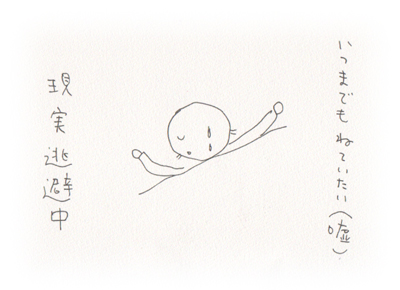 いつまでもねていたい(嘘).
現実逃避中